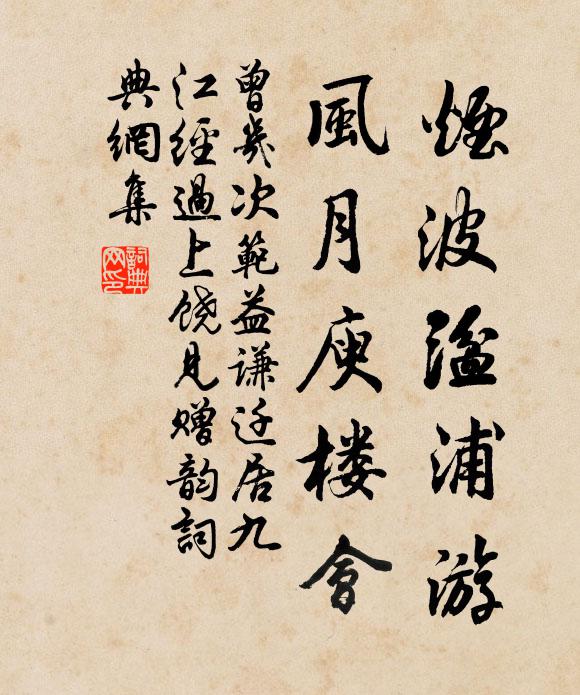 煙波湓浦游
風月庾楼會
曾幾次範益謙迁居九
江經過上饶見赠韵詞
典網集
詞典
网印